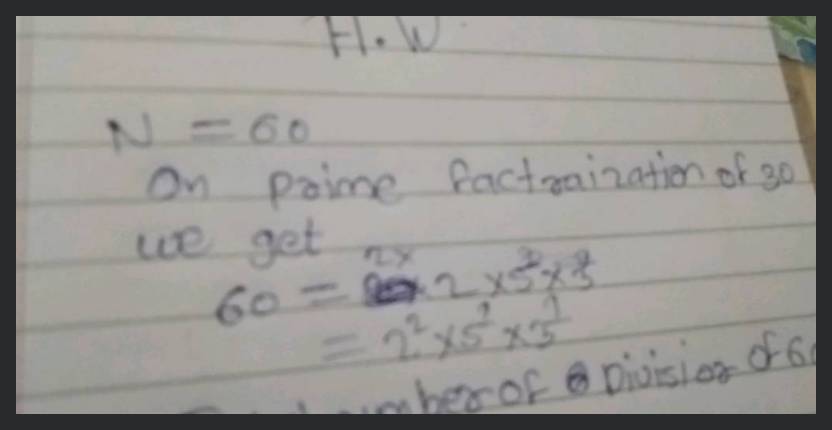 H.W
N = 60
On prime factraization of 30
we get
60 = 2x 2 x 5 x 3
= 2² x 5¹ x 3¹
number of Division of 60